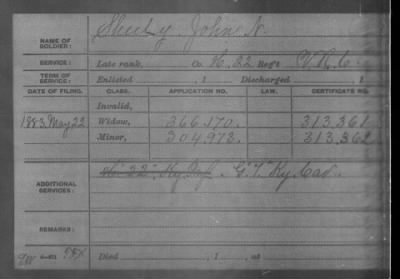 NAME OF SOLDIER: Sheely John N.
SERVICE: Late rank, Co. H. 22 Reg't V.R.C.
TERM OF SERVICE: Enlisted , 1 Discharged , 1
DATE OF FILING. CLASS. APPLICATION NO. LAW. CERTIFICATE NO.
Invalid,
1883 May 22 Widow, 266.170. 313.361
Minor, 304.973. 313.362
ADDITIONAL SERVICES: "22" Ky Inf. G. 7. Ky. Cav.
REMARKS:
Died , 1 , at